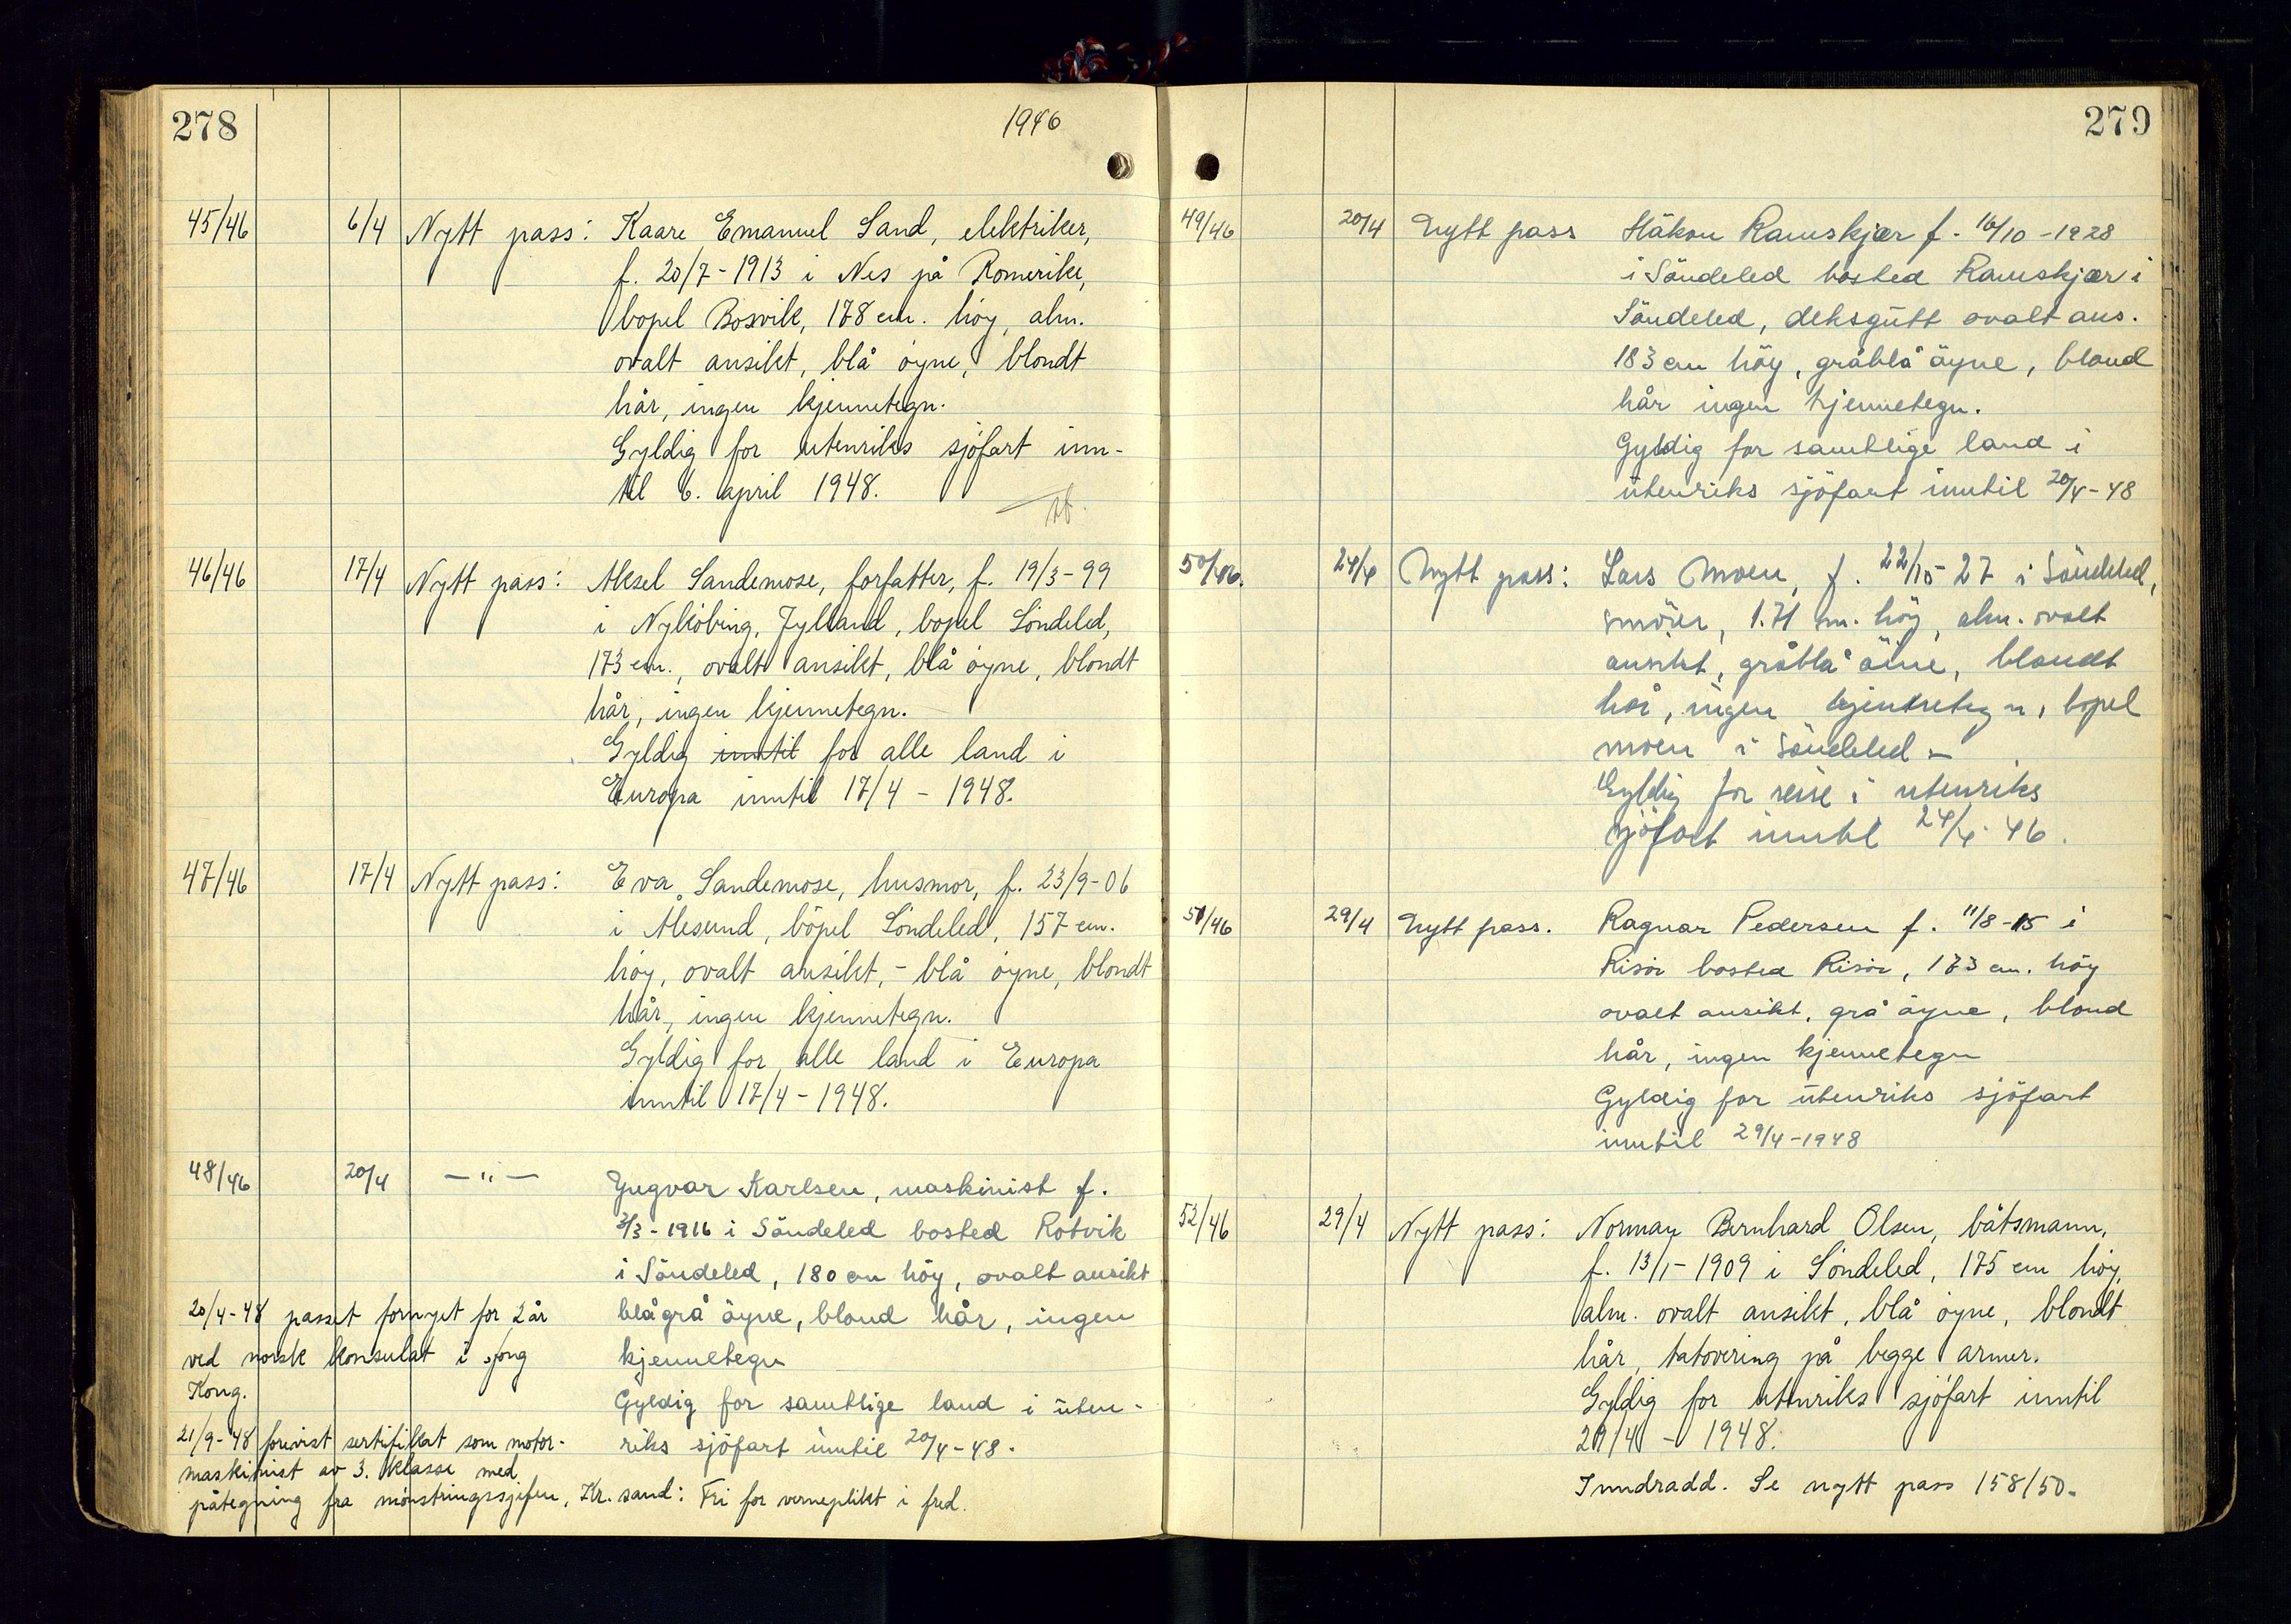 278
1946
45/46 6/4 Nytt pass: Kaare Emanuel Sand, elektriker,
f. 20/7-1913 i Nes på Romerike,
bopel Bosvik, 178 cm. høy, alm.
ovalt ansikt, blå øyne, blondt
hår, ingen kjennetegn.
Gyldig for utenriks sjøfart inn-
til 6. april 1948.
46/46 17/4 Nytt pass: Aksel Sandemose, forfatter, f. 19/3-99
i Nykøbing, Jylland, bopel Søndeled,
173 cm., ovalt ansikt, blå øyne, blondt
hår, ingen kjennetegn.
Gyldig inntil for alle land i
Europa inntil 17/4 - 1948.
47/46 17/4 Nytt pass: Eva Sandemose, husmor, f. 23/9-06
i Ålesund, bopel Søndeled, 157 cm.
høy, ovalt ansikt, - blå øyne, blondt
hår, ingen kjennetegn.
Gyldig for alle land i Europa
inntil 17/4 - 1948.
48/46 20/4 — " — Yngvar Karlsen, maskinist f.
3/3-1916 i Söndeled bosted Rotvik
i Söndeled, 180 cm höy, ovalt ansikt
blågrå öyne, blond hår, ingen
kjennetegn
Gyldig for samtlige land i uten-
riks sjöfart inntil 20/4-48.
20/4-48 passet fornyet for 2 år
ved norsk konsulat i Hong
Kong.
21/9-48 forevist sertifikat som motor-
maskinist av 3. klasse med
påtegning fra mønstringssjefen, Kr.sand: Fri for verneplikt i fred.
279
49/46 20/4 Nytt pass Håkon Ramskjær f. 16/10-1928
i Söndeled bosted Ramskjær i
Söndeled, deksgutt ovalt ans.
183 cm höy, gråblå öyne, blond
hår ingen kjennetegn.
Gyldig for samtlige land i
utenriks sjöfart inntil 20/4-48
50/46. 24/4 Nytt pass: Lars Moen, f. 22/10-27 i Söndeled,
smører, 1.71 m. höy, alm. ovalt
ansikt, gråblå öine, blondt
hår, ingen kjennetegn, bopel
Moen i Söndeled -
Gyldig for reise i utenriks
sjöfart inntil 24/4-46.
51/46 29/4 Nytt pass. Ragnar Pedersen f. 11/8-15 i
Risör bosted Risör, 173 cm. höy
ovalt ansikt, grå öyne, blond
hår, ingen kjennetegn
Gyldig for utenriks sjöfart
inntil 29/4-1948
52/46 29/4 Nytt pass: Norman Bernhard Olsen, båtsmann,
f. 13/1-1909 i Søndeled, 175 cm høy,
alm. ovalt ansikt, blå øyne, blondt
hår, tatovering på begge armer.
Gyldig for utenriks sjøfart inntil
29/4 - 1948.
Inndradd. Se nytt pass 158/50.